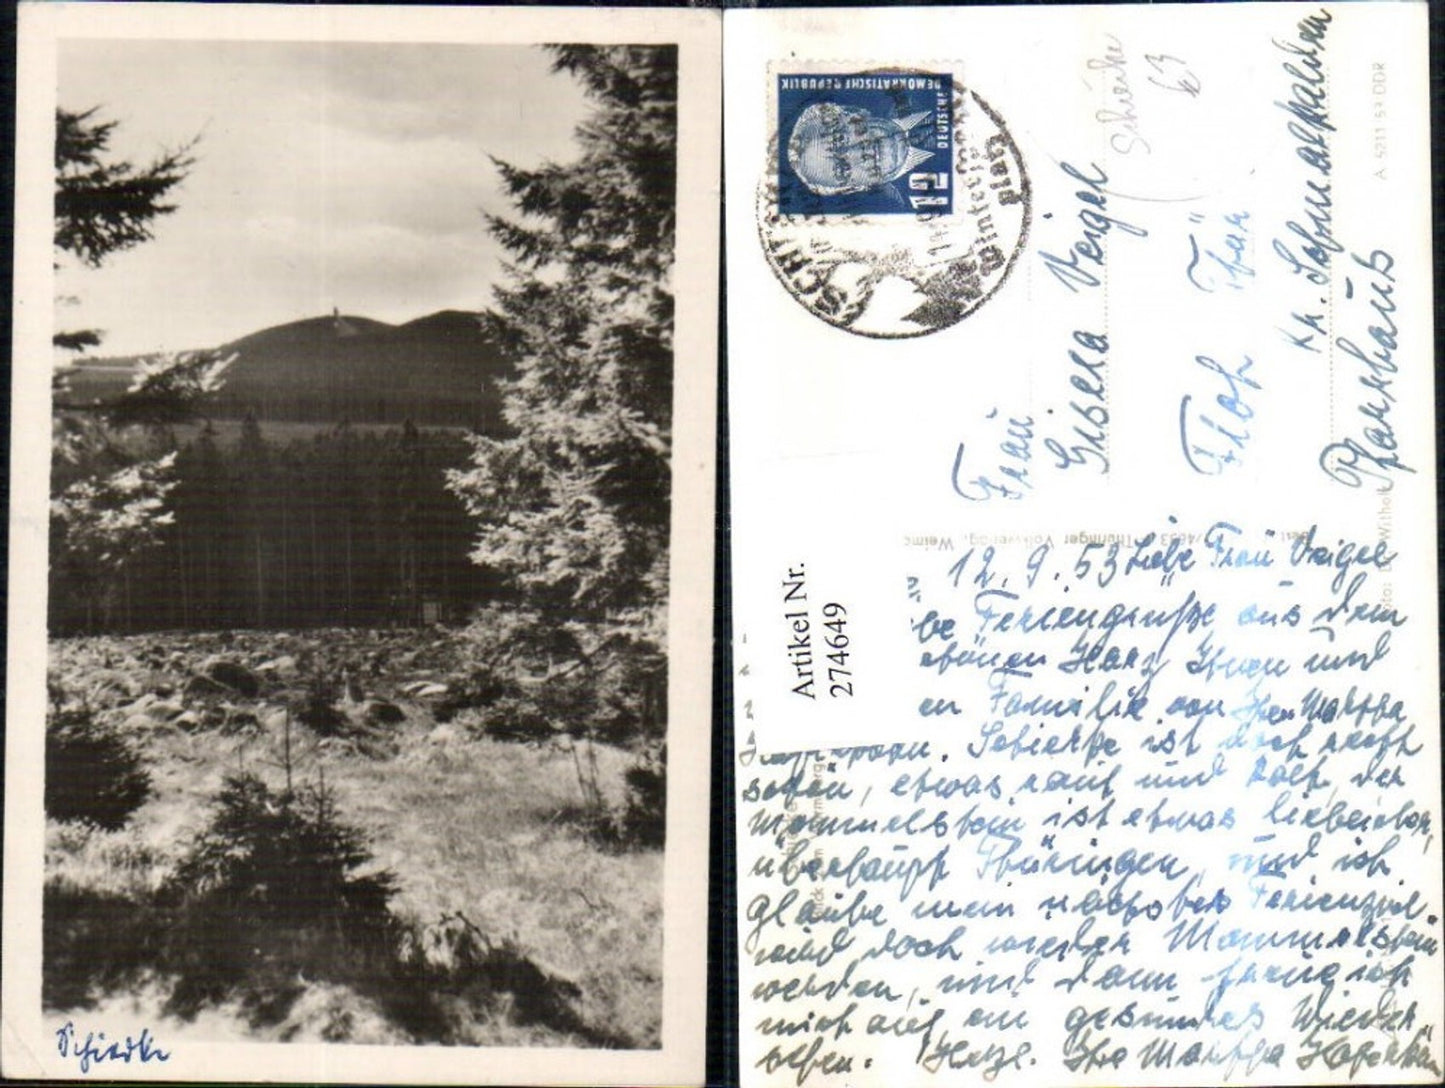 Schierke
DEUTSCHE
DEMOKRATISCHE REPUBLIK
12
Wintersport
platz
Schierke
63
A 5211 53 DDR
Frau
Gisela Veigel
Floh Thür
Kr. Schmalkalden
Pfarrhaus
Thüringer Volksverlag, Weim
Artikel Nr.
274649
12. 9. 53 Liebe Frau Veigel
be Feriengrüße aus dem
schönen Harz Ihnen und
en Familie von Ihrer Martha
Schierke ist doch recht
schön, etwas rauh und kalt, der
Mommelstein ist etwas lieblicher,
überhaupt Thüringen, und ich
glaube mein nächstes Ferienziel
wird doch wieder Mommelstein
werden, und dann freue ich
mich auf ein gesundes Wieder
sehen. Herzl. Ihre Martha